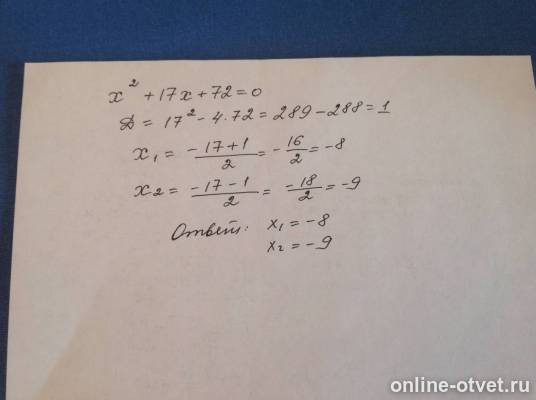 x² + 17x + 72 = 0
Д = 17² - 4·72 = 289 - 288 = 1
x₁ = -17+1/2 = -16/2 = -8
x₂ = -17-1/2 = -18/2 = -9
Ответ: x₁ = -8
x₂ = -9
online-otvet.ru